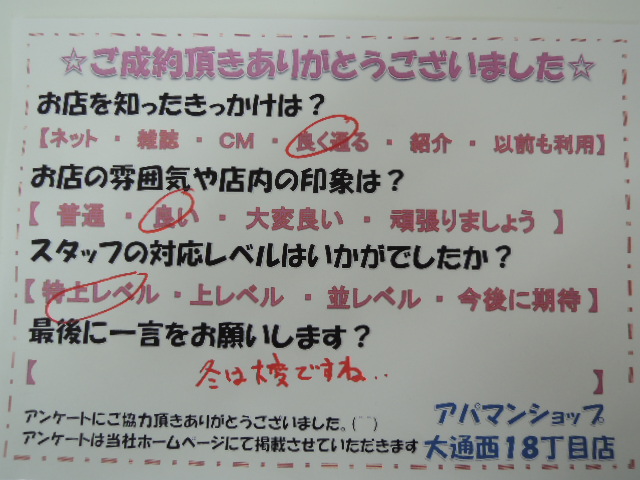 ☆ご成約頂きありがとうございました☆
お店を知ったきっかけは？
【ネット ・ 雑誌 ・ CM ・ 良く通る ・ 紹介 ・ 以前も利用】
お店の雰囲気や店内の印象は？
【 普通 ・ 良い ・ 大変良い ・ 頑張りましょう 】
スタッフの対応レベルはいかがでしたか？
【特上レベル ・ 上レベル ・ 並レベル ・ 今後に期待】
最後に一言をお願いします？
【 冬は大変ですね．． 】
アンケートにご協力頂きありがとうございました。(⌒⌒)
アンケートは当社ホームページにて掲載させていただきます
アパマンショップ
大通西18丁目店